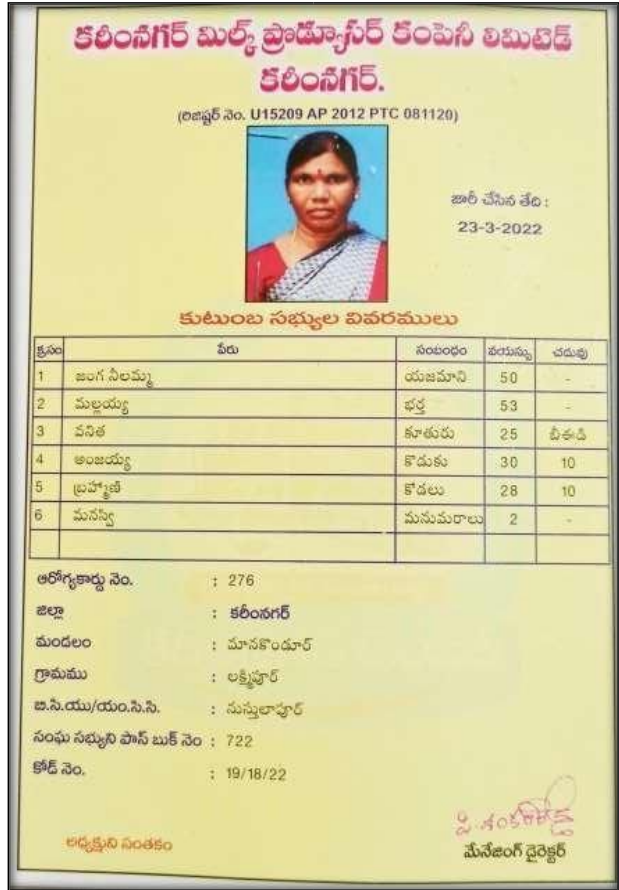 కరీంనగర్ మిల్క్ ప్రొడ్యూసర్ కంపెనీ లిమిటెడ్
కరీంనగర్.
(రిజిష్టర్ నెం. U15209 AP 2012 PTC 081120)
జారీ చేసిన తేది :
23-3-2022
కుటుంబ సభ్యుల వివరములు
క్రసం పేరు సంబంధం వయస్సు చదువు
1 జంగ నీలమ్మ యజమాని 50 -
2 మల్లయ్య భర్త 53 -
3 వనిత కూతురు 25 బీఈడి
4 అంజయ్య కొడుకు 30 10
5 బ్రహ్మాణి కోడలు 28 10
6 మనస్వి మనుమరాలు 2 -
ఆరోగ్యకార్డు నెం. : 276
జిల్లా : కరీంనగర్
మండలం : మానకొండూర్
గ్రామము : లక్ష్మిపూర్
బి.సి.యు/యం.సి.సి. : నుస్తులాపూర్
సంఘ సభ్యుని పాస్ బుక్ నెం : 722
కోడ్ నెం. : 19/18/22
పి. శంకర్‌రెడ్డి
అధ్యక్షుని సంతకం
మేనేజింగ్ డైరెక్టర్